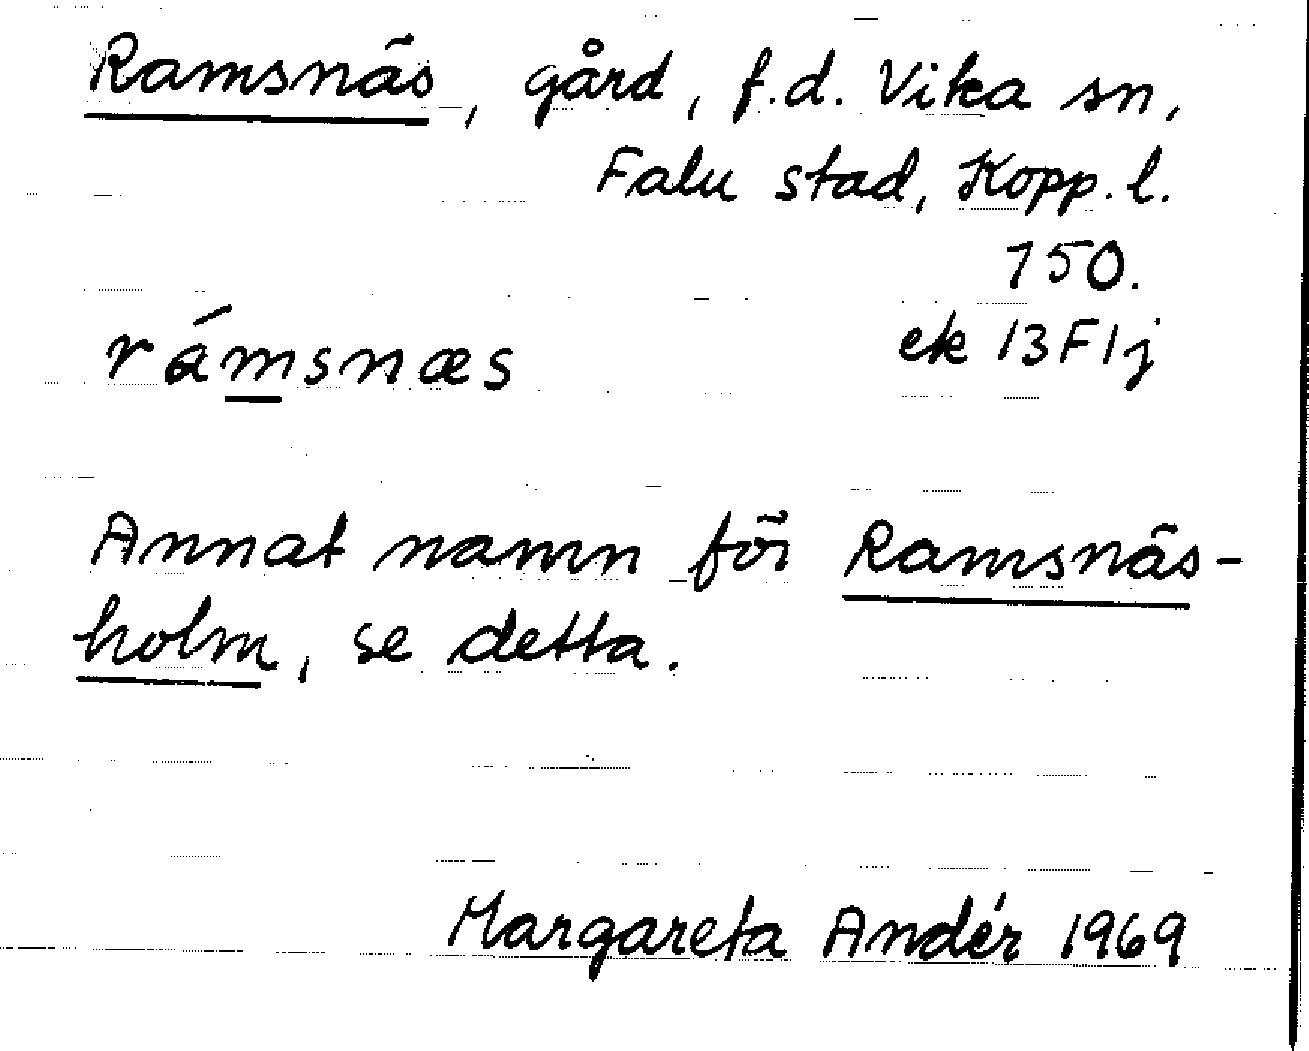 Ramsnäs, gård, f.d. Vika sn,
Falu stad, Kopp. l.
150.
rámsnæs
ek 13F1j
Annat namn för Ramsnäs-
holm, se detta.
Margareta Andér 1969